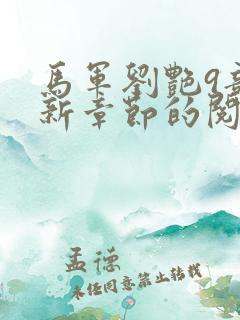 馬軍劉艷9章
新章節的閱
孟德
未經同意禁止轉載